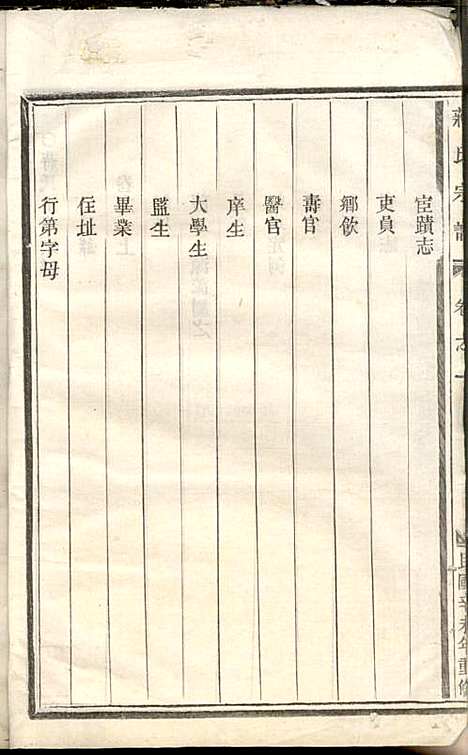 宦蹟志
吏員
鄉飲
壽官
醫官
庠生
大學生
監生
畢業
住址
行第字母
氏宗譜
卷之一
民國辛未年重修